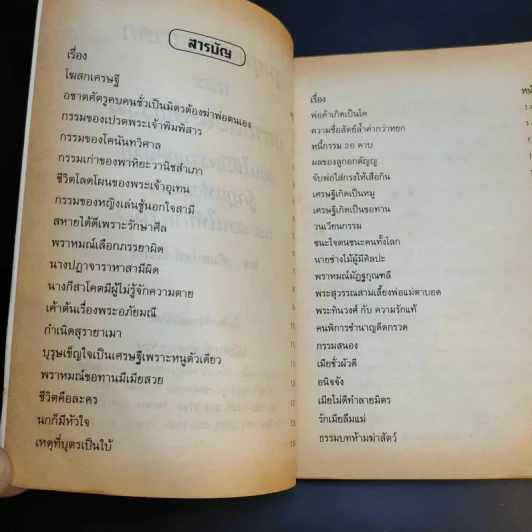 สารบัญ
เรื่อง
โฆสกเศรษฐี
อชาตศัตรูคบคนชั่วเป็นมิตรต้องฆ่าพ่อตนเอง
กรรมของเปรตพระเจ้าพิมพิสาร
กรรมของโคนันทวิศาล
กรรมเก่าของพาหิยะวานิชสำเภา
ชีวิตโลดโผนของพระเจ้าอุเทน
กรรมของหญิงเล่นชู้นอกใจสามี
สหายได้ดีเพราะรักษาศีล
พราหมณ์เลือกภรรยาผิด
นางปฏาจาราหาสามีผิด
นางกีสาโคตมีผู้ไม่รู้จักความตาย
เค้าต้นเรื่องพระอภัยมณี
กำเนิดสุรายาเมา
บุรุษเข็ญใจเป็นเศรษฐีเพราะหนูตัวเดียว
พราหมณ์ขอทานมีเมียสวย
ชีวิตคือละคร
นกก็มีหัวใจ
เหตุที่บุตรเป็นใบ้
เรื่อง
พ่อค้าเกิดเป็นโค
ความซื่อสัตย์ล้ำค่ากว่าหยก
หนี้กรรม 26 ดาบ
ผลของลูกอกตัญญู
จับพ่อใส่กรงให้เสือกิน
เศรษฐีเกิดเป็นหมู
เศรษฐีเกิดเป็นขอทาน
วนเวียนกรรม
ชนะใจตนชนะคนทั้งโลก
นายช่างไม้ผู้มีศิลปะ
พราหมณ์มัฏฐกุณฑลี
พระสุวรรณสามเลี้ยงพ่อแม่ตาบอด
พระทินวงศ์ กับ ความรักแท้
คนพิการชำนาญดีดกรวด
กรรมสนอง
เมียชั่วผัวดี
อนิจจัง
เมียไม่ดีทำลายมิตร
รักเมียลืมแม่
ธรรมบทห้ามฆ่าสัตว์